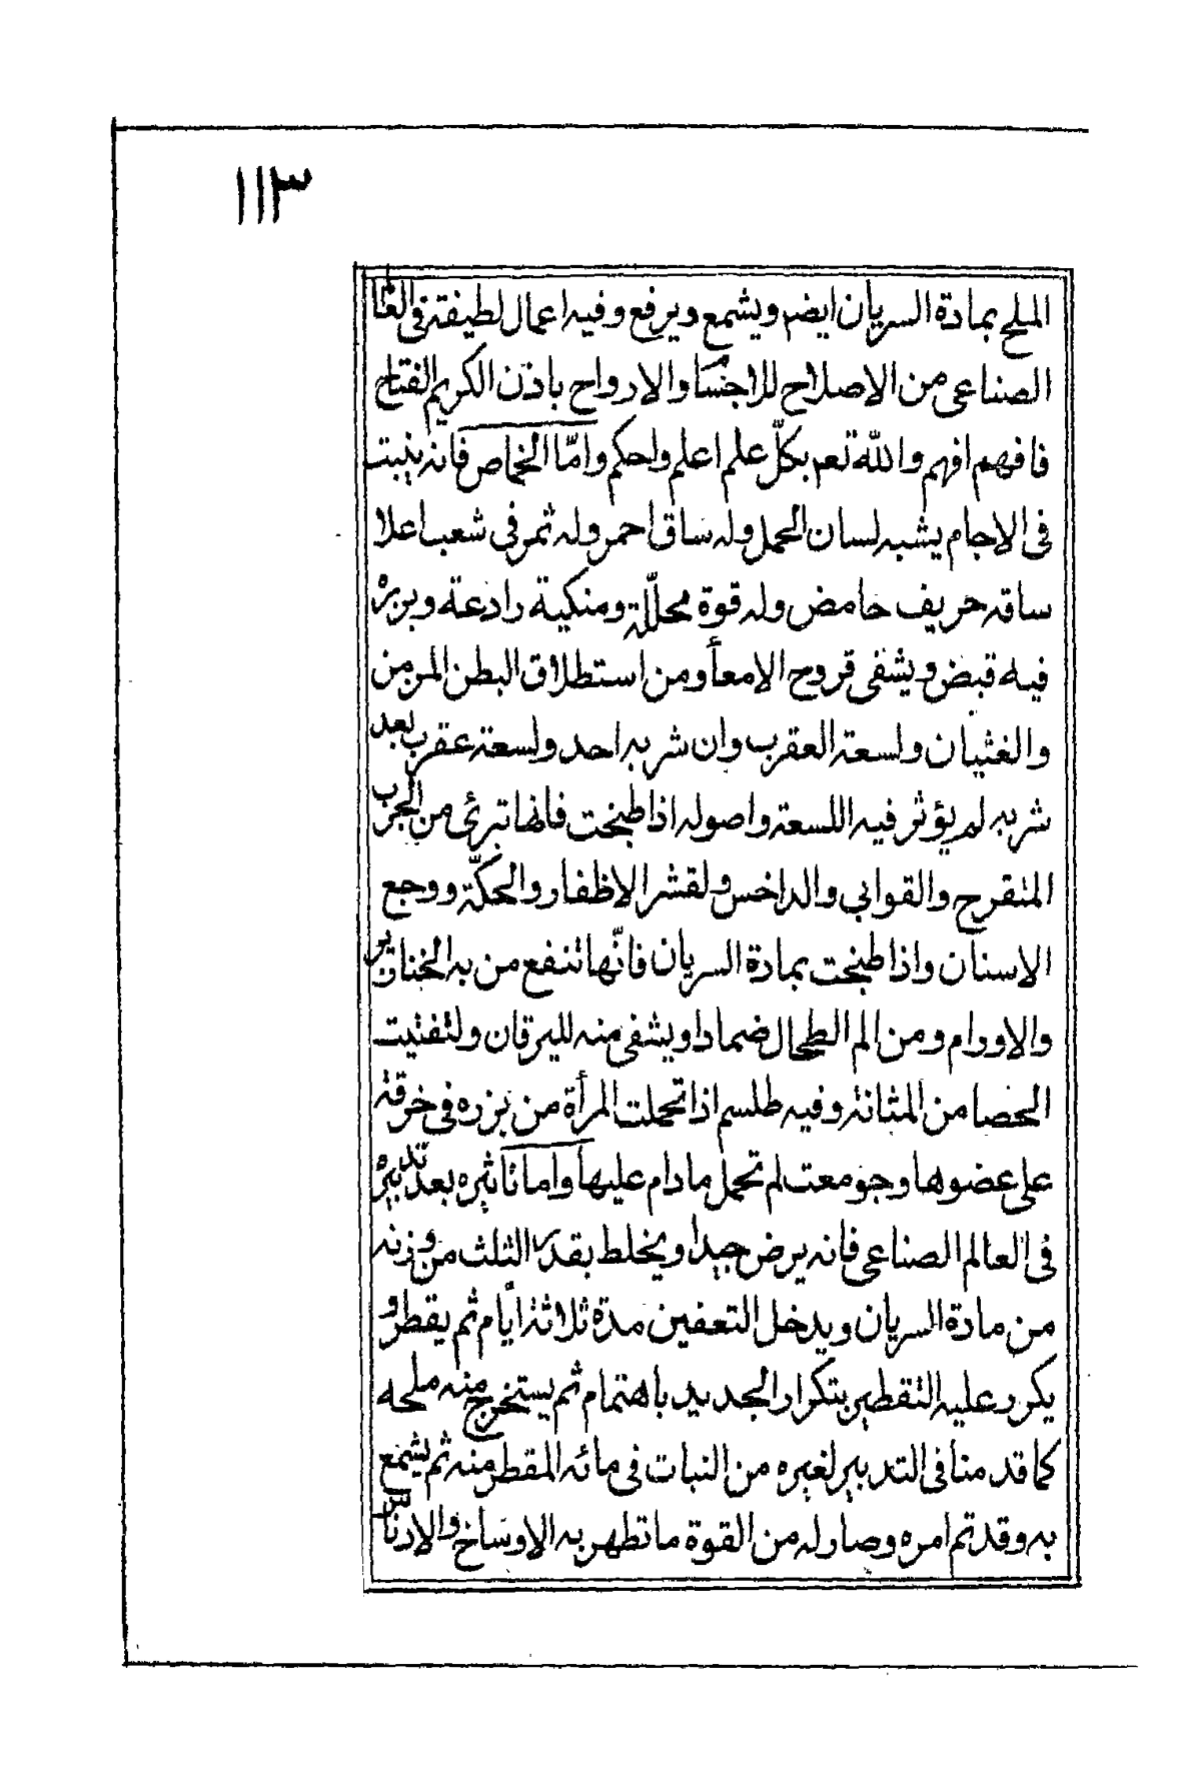 ١١٣
الملح بمادة السريان ايضم ويشمع ويرفع وفيه اعمال لطيفة فى العا
الصناعى من الاصلاح للاجسا والارواح باذن الكريم الفتاح
فافهم افهم والله تعم بكلّ علم اعلم واحكم وامّا الخماص فانه ينبت
فى الاجام يشبه لسان الحمل وله ساق احمر وله ثمر فى شعب اعلا
ساقه حريف حامض وله قوة محلّلة ومنكية رادعة وبرزه
فيه قبض ويشفى قروح الامعأ ومن استطلاق البطن المزمن
والغثيان ولسعة العقرب وان شربه احد ولسعته عقرب بعد
شربه لم يؤثر فيه اللسعة واصوله اذا طبخت فانها تبرئ من الجرب
المتقرح والقوابى والداخس ولقشر الاظفار والحكّة ووجع
الاسنان واذا طبخت بمادة السريان فانّها تنفع من به الخنازير
والاورام ومن الم الطحال ضمادا ويشفى منه لليرقان ولتفتيت
الحصا من المثانة وفيه طلسم اذا تحملت المرأة من بزره فى خرقة
على عضوها وجومعت لم تحمل ما دام عليها واما تاثيره بعد تدبيره
فى العالم الصناعى فانه يرض جيدا ويخلط بقدر الثلث من وزنه
من مادة السريان ويدخل التعفين مدة ثلاثة أيّام ثم يقطر و
يكرر عليه التقطير بتكرار الجديد باهتمام ثم يستخرج منه ملحه
كما قدمنا فى التدبير لغيره من النبات فى مائه المقطر منه ثم يشمع
به وقد تم امره وصار له من القوة ما تطهر به الاوساخ والادناس